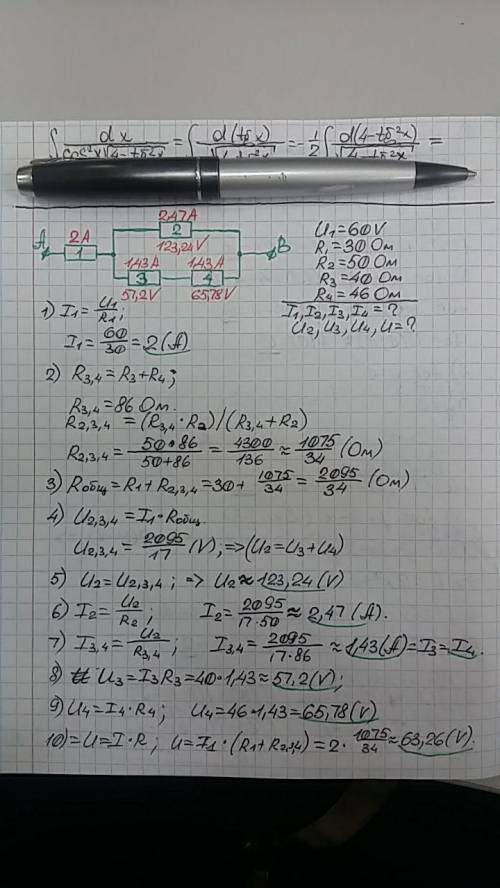 ∫ dx / cos²x√(4-tg²x) = ∫ d(tgx) / √(4-tg²x) = -1/2 ∫ d(4-tg²x) / √(4-tg²x) =
2,47A
2A 2
A 1 123,24V B
1,43A 1,43A
3 4
57,2V 65,78V
U₁=60V
R₁=30 Ом
R₂=50 Ом
R₃=40 Ом
R₄=46 Ом
I₁,I₂,I₃,I₄=?
U₂,U₃,U₄,U=?
1) I₁=U₁/R₁;
I₁=60/30=2(A)
2) R₃,₄=R₃+R₄;
R₃,₄=86 Ом.
R₂,₃,₄=(R₃,₄·R₂)/(R₃,₄+R₂)
R₂,₃,₄=50·86/50+86=4300/136≈1075/34 (Ом)
3) Rобщ=R₁+R₂,₃,₄=30+1075/34=2095/34 (Ом)
4) U₂,₃,₄=I₁·Rобщ.
U₂,₃,₄=2095/17 (V);=>(U₂=U₃+U₄)
5) U₂=U₂,₃,₄; => U₂≈123,24(V)
6) I₂=U₂/R₂; I₂=2095/17·50≈2,47(A).
7) I₃,₄=U₂/R₃,₄; I₃,₄=2095/17·86≈1,43(A)=I₃=I₄.
8) U₃=I₃R₃=40·1,43≈57,2(V);
9) U₄=I₄·R₄; U₄=46·1,43=65,78(V)
10)=U=I·R; U=I₁·(R₁+R₂,₃,₄)=2·1075/34≈63,26(V).